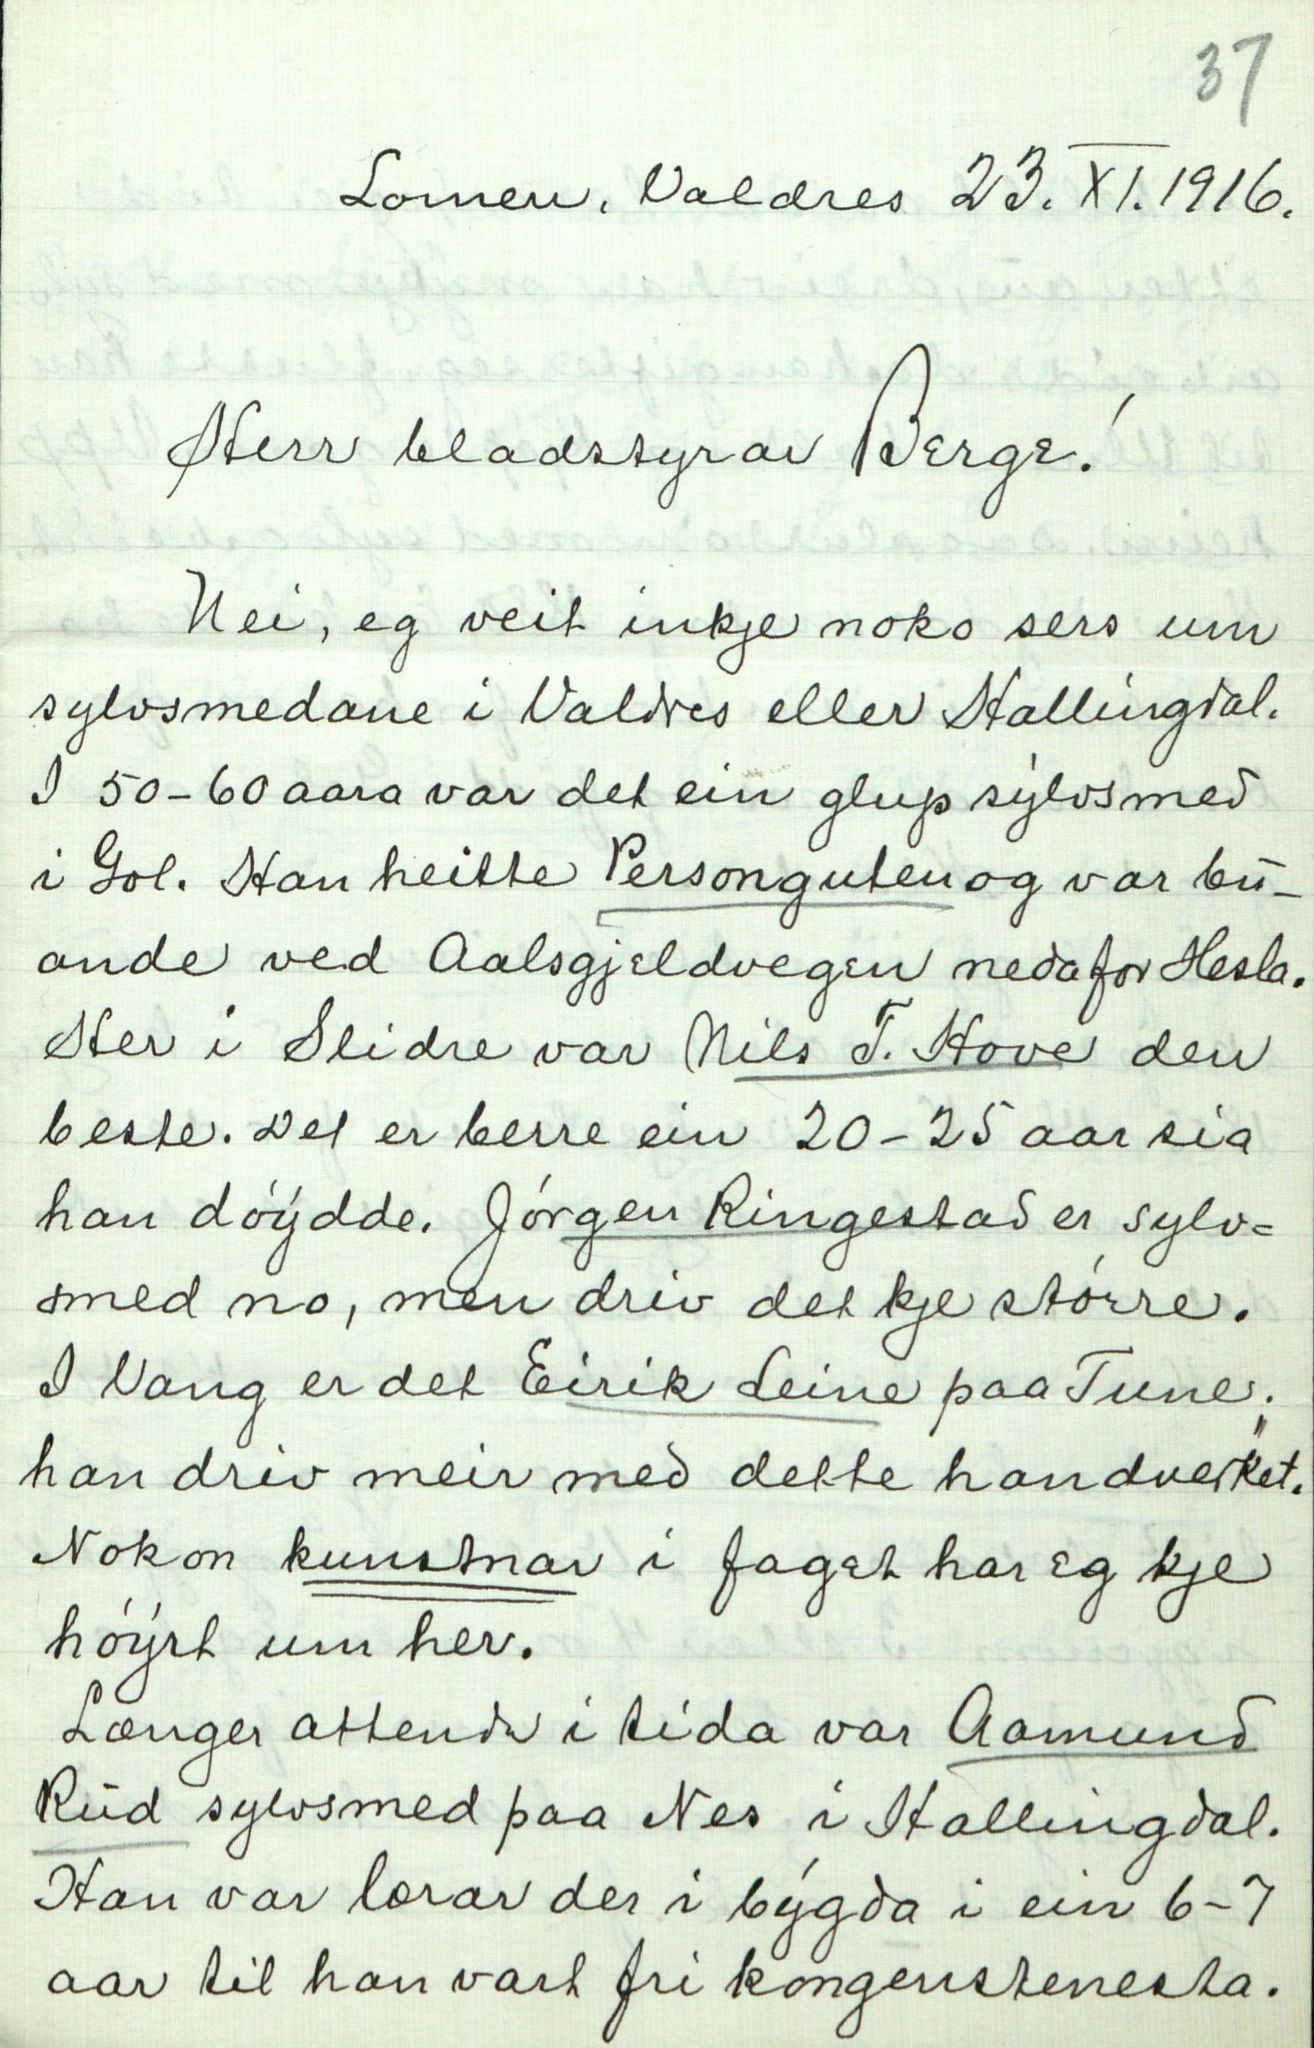 37
Lomen, Valdres 23. XI. 1916.
Herr bladstyrar Berge!
Nei, eg veit inkje noko sers um
sylvsmedane i Valdres eller Hallingdal.
I 50-60 aara var det ein glup sylvsmed
i Gol. Han heitte Personguten og var bu-
ande ved Aalsgjeldvegen nedafor Hesla.
Her i Slidre var Nils T. Hove den
beste. Det er berre ein 20-25 aar sia
han döydde. Jörgen Ringestad er sylv-
smed no, men driv det kje större.
I Vang er det Eirik Leine paa Tune;
han driv meir med dette handverket.
Nokon kunstnar i faget har eg kje
höyrt um her.
Længer attende i tida var Aamund
Rud sylvsmed paa Nes i Hallingdal.
Han var lærar der i bygda i ein 6-7
aar til han vart fri kongenstenesta.